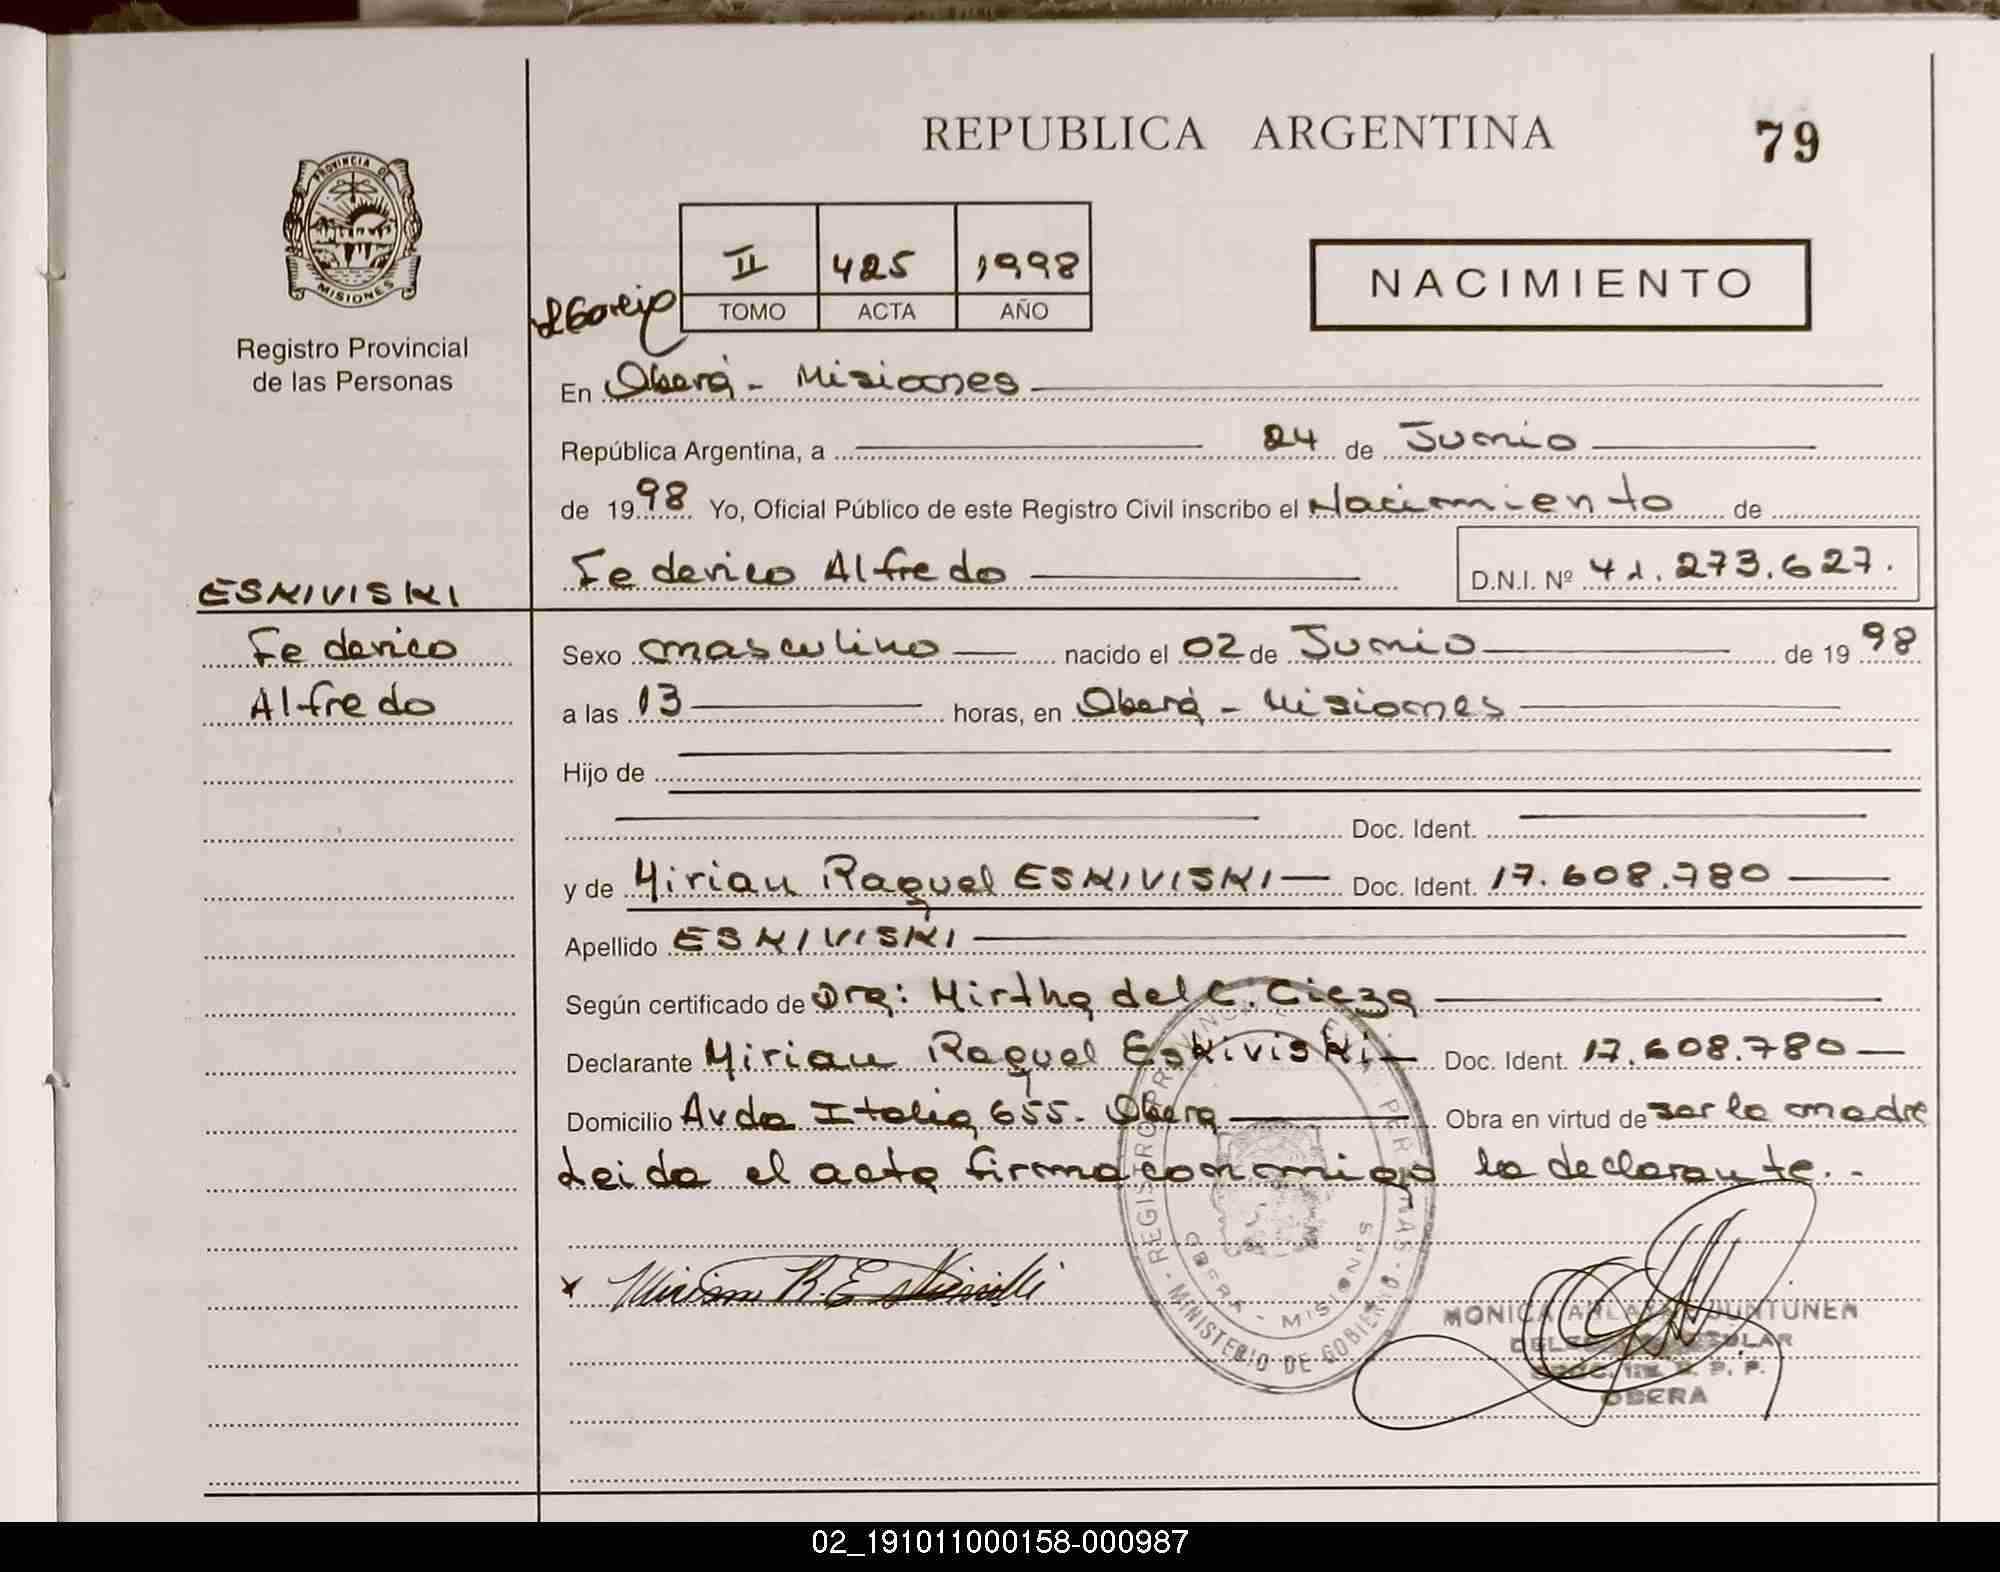 REPUBLICA ARGENTINA
79
PROVINCIA DE MISIONES
Registro Provincial
de las Personas
II 425 1998
TOMO ACTA AÑO
NACIMIENTO
En Oberá - Misiones
República Argentina, a 24 de Junio
de 1998 Yo, Oficial Público de este Registro Civil inscribo el Nacimiento de
Federico Alfredo D.N.I. Nº 41.273.627.
ESKIVISKI
Federico
Alfredo
Sexo masculino nacido el 02 de Junio de 1998
a las 13 horas, en Oberá - Misiones
Hijo de
Doc. Ident.
y de Mirian Raquel ESKIVISKI Doc. Ident. 17.608.780
Apellido ESKIVISKI
Según certificado de Dra: Mirtha del C. Cieza
Declarante Mirian Raquel Eskiviski Doc. Ident. 17.608.780
Domicilio Avda Italia 655. Obera Obra en virtud de ser la madre
Leida el acta firma conmigo la declarante.-
x Miriam R. Eskiviski
REGISTRO PROVINCIAL DE LAS PERSONAS
OBERA - MISIONES
MINISTERIO DE GOBIERNO
MONICA JUNTUNEN
OBERA
02_191011000158-000987